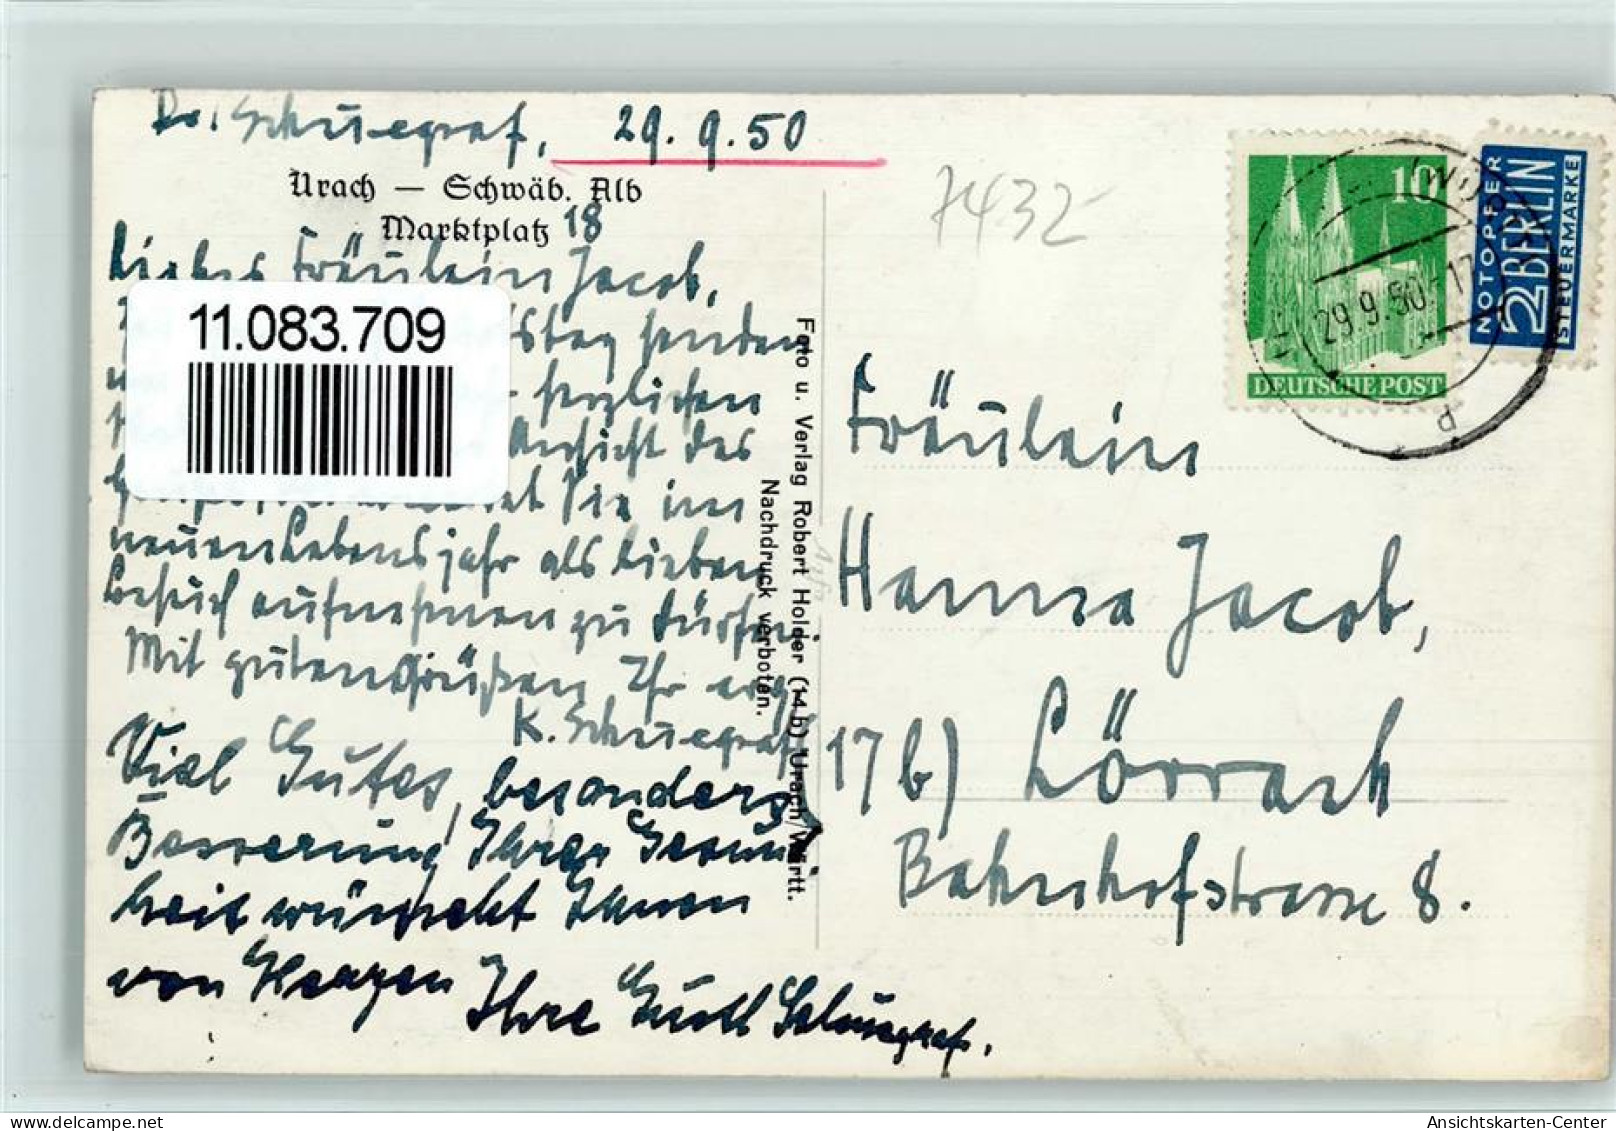 Dr. Schuegraf, 29.9.50
Urach — Schwäb. Alb
Marktplatz 18
Liebes Fräulein Jacob,
11.083.709
senden
herzlichen
Ansicht des
Sie im
neuen Lebensjahr als lieben
Besuch aufnehmen zu dürfen.
Mit guten Grüßen Ihr erg.
K. Schuegraf
Viel Gutes, besonders
Besserung Ihrer Gesund-
heit wünscht Ihnen
von Herzen Ihre Schuegraf.
Foto u. Verlag Robert Holder (14 b) Urach/Württ.
Nachdruck verboten.
7432
10
DEUTSCHE POST
NOTOPFER
2 BERLIN
STEUERMARKE
29.9.50.17
Fräulein
Hanna Jacob,
17b) Lörrach
Bahnhofstrasse 8.
www.oldthing.de
Ansichtskarten-Center